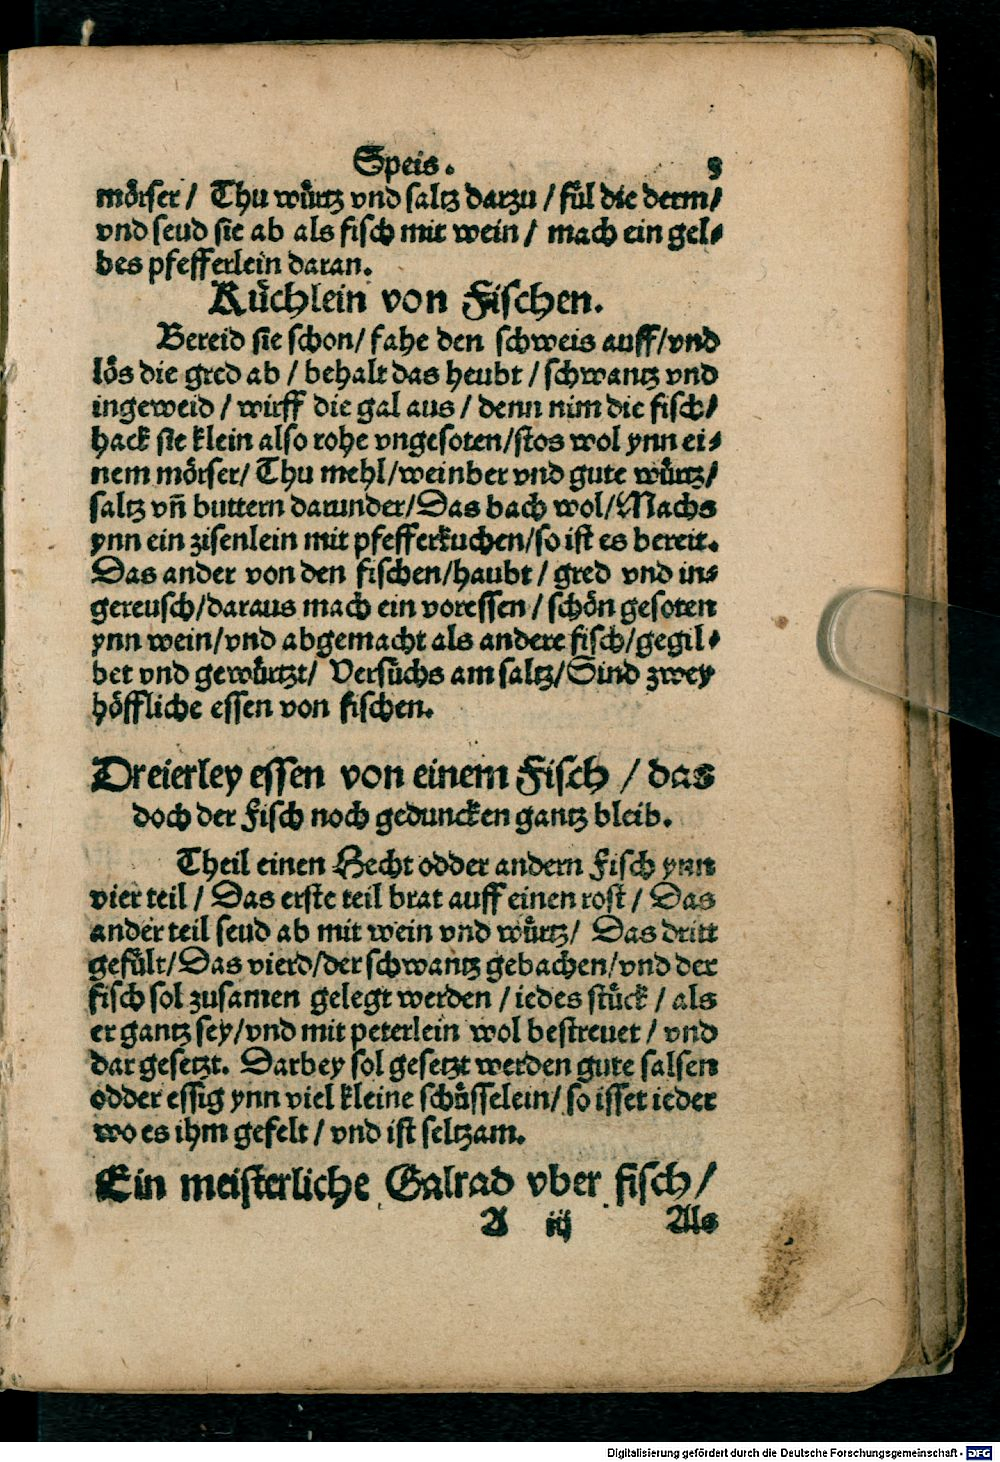 Speis. 3
mörser / Thu würtz vnd saltz darzu / fül die derm/
vnd seud sie ab als fisch mit wein / mach ein gel⸗
bes pfefferlein daran.
Küchlein von Fischen.
Bereid sie schon/ fahe den schweis auff/vnd
lös die gred ab / behalt das heubt / schwantz vnd
ingeweid / wirff die gal aus / denn nim die fisch/
hack sie klein also rohe vngesoten/stos wol ynn ei⸗
nem mörser/ Thu mehl/weinber vnd gute würtz/
saltz vñ buttern darunder/Das bach wol/Machs
ynn ein zisenlein mit pfefferkuchen/so ist es bereit.
Das ander von den fischen/haubt / gred vnd in⸗
gereusch/daraus mach ein voressen / schön gesoten
ynn wein/vnd abgemacht als andere fisch/gegil⸗
bet vnd gewürtzt/ Versuchs am saltz/Sind zwey
höffliche essen von fischen.
Dreierley essen von einem Fisch / das
doch der Fisch noch geduncken gantz bleib.
Theil einen Hecht odder andern Fisch ynn
vier teil / Das erste teil brat auff einen rost / Das
ander teil seud ab mit wein vnd würtz/ Das dritt
gefült/Das vierd/der schwantz gebachen/vnd der
fisch sol zusamen gelegt werden / iedes stück / als
er gantz sey/vnd mit peterlein wol bestreuet / vnd
dar gesetzt. Darbey sol gesetzt werden gute salsen
odder essig ynn viel kleine schüsselein/ so isset ieder
wo es ihm gefelt / vnd ist seltzam.
Ein meisterliche Galrad vber fisch/
A iij Als
Digitalisierung gefördert durch die Deutsche Forschungsgemeinschaft - DFG